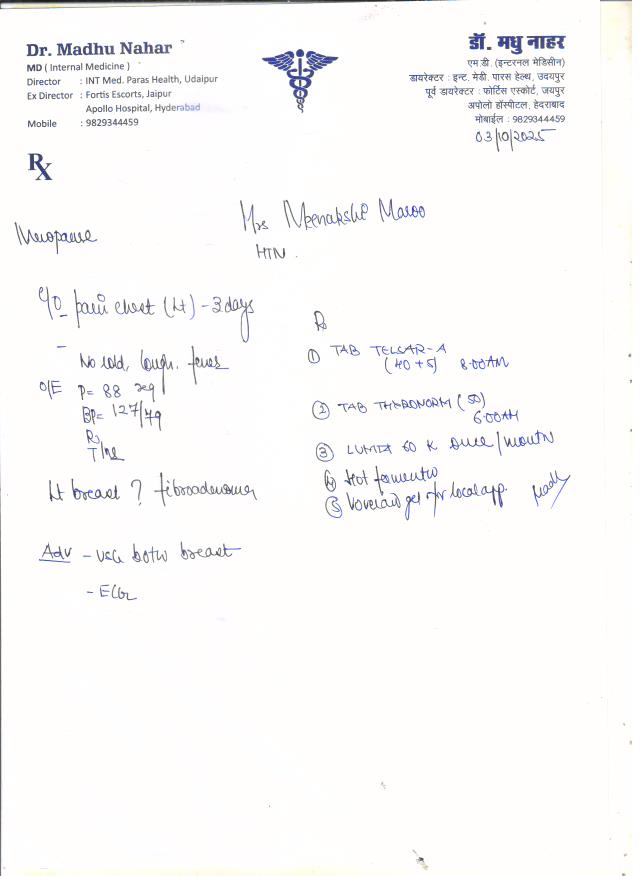 Dr. Madhu Nahar
MD ( Internal Medicine )
Director : INT Med. Paras Health, Udaipur
Ex Director : Fortis Escorts, Jaipur
Apollo Hospital, Hyderabad
Mobile : 9829344459
डॉ. मधु नाहर
एम.डी. (इन्टरनल मेडिसीन)
डायरेक्टर : इन्ट. मेडी. पारस हेल्थ, उदयपुर
पूर्व डायरेक्टर : फोर्टिस एस्कोर्ट, जयपुर
अपोलो हॉस्पीटल, हेदराबाद
मोबाईल : 9829344459
03/10/2025
Rx
Mrs Meenakshi Maroo
Menopause
HTN
C/O pain chest (Lt) - 3 days
- No cold, cough, fever
O/E P= 88 reg
BP= 127/79
Lt breast ? fibroadenoma
Adv - USG both breast
- ECG
R
① TAB TELSAR-A
(40+5) 8.00AM
② TAB THYRONORM (50)
6.00AM
③ 60 K once/month
④ Hot
⑤ gel for local app.